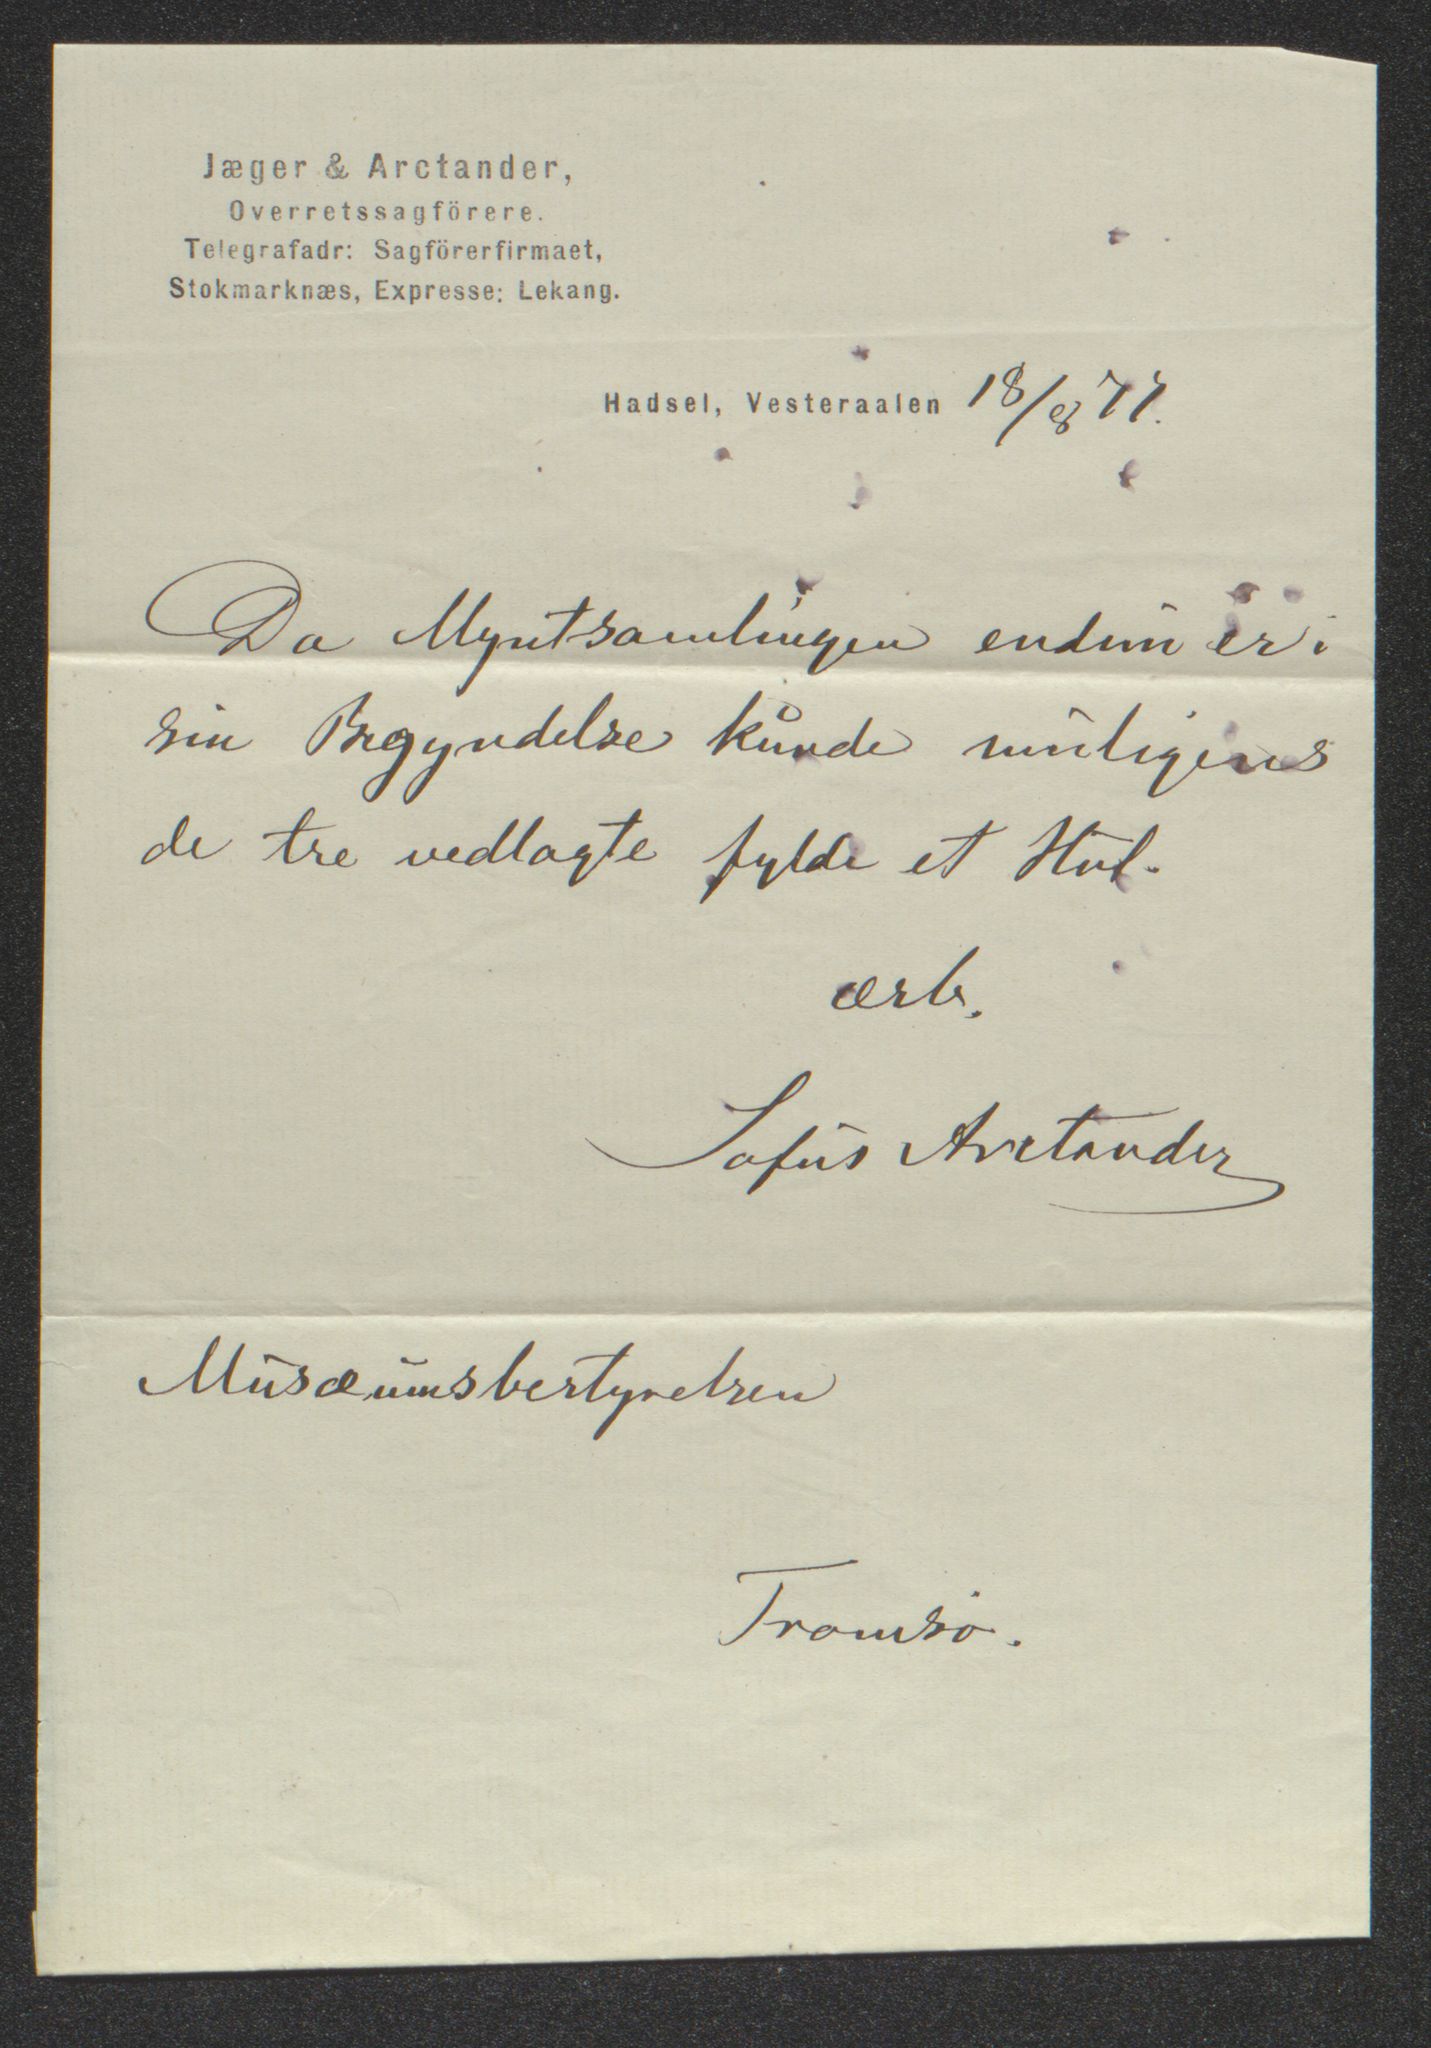 Jæger & Arctander,
Overretssagförere.
Telegrafadr: Sagförerfirmaet,
Stokmarknæs, Expresse: Lekang.
Hadsel, Vesteraalen 18/8 77.
Da Myntsamlingen endnu er i
sin Begyndelse kunde muligens
de tre vedlagte fylde et Hul.
ærb.
Sofus Arctander
Musæumsbestyrelsen
Tromsø.